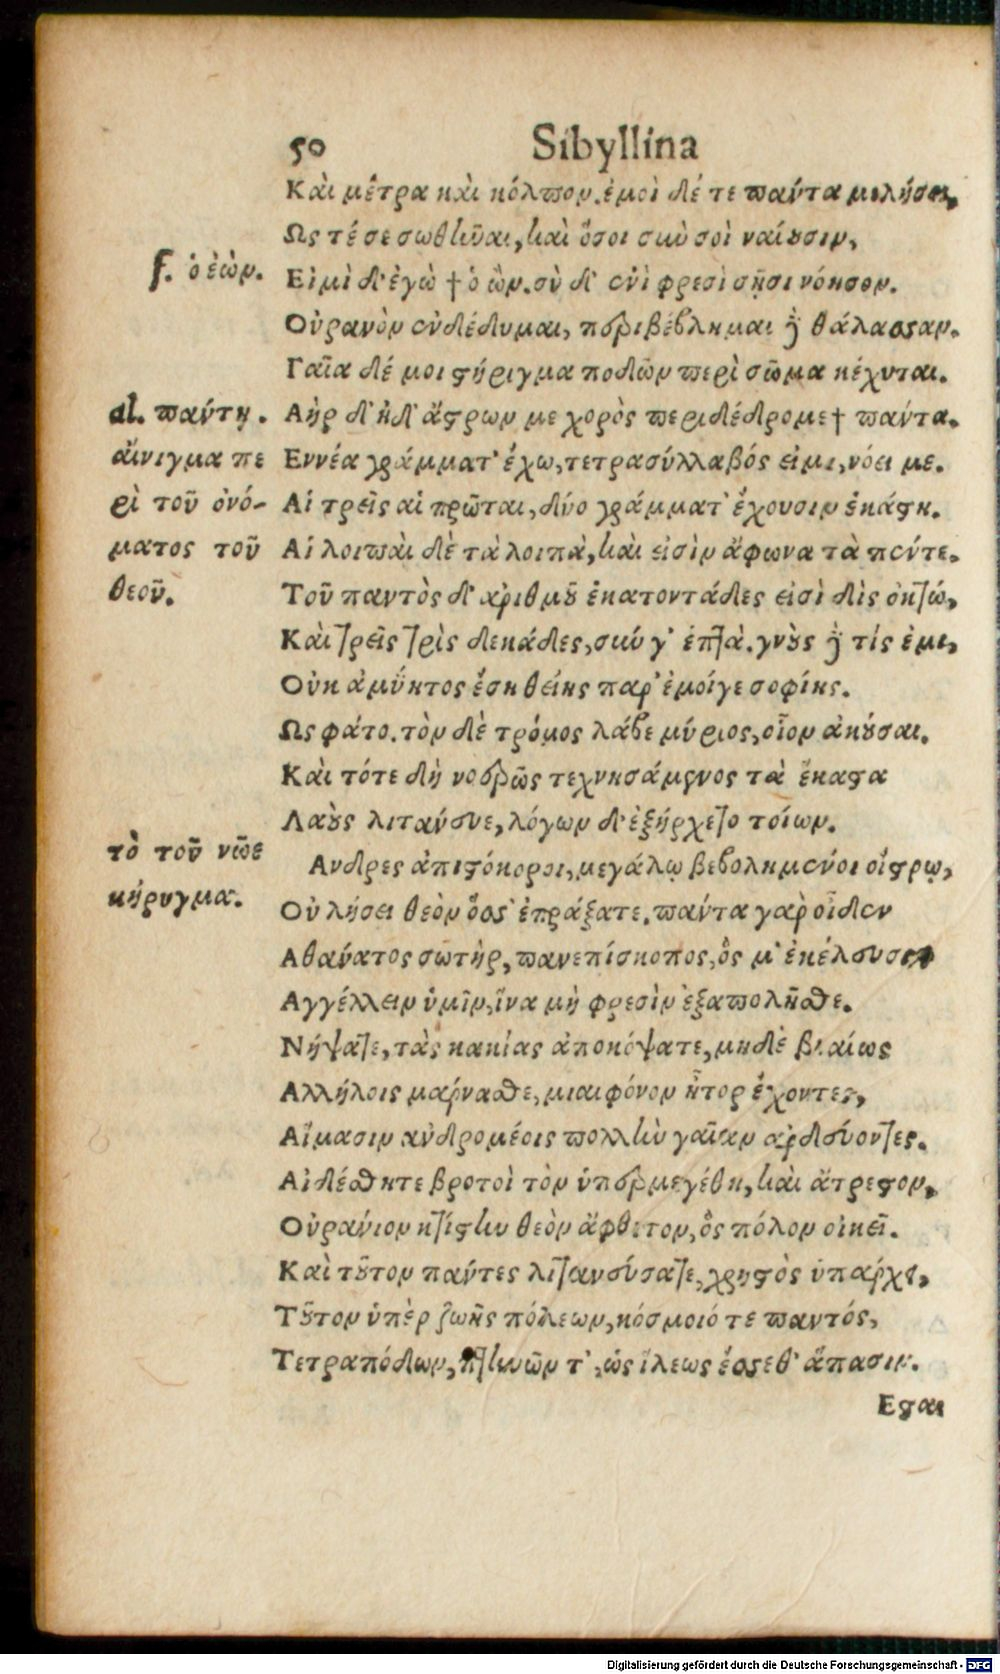 50 Sibyllina
Καὶ μέτρα καὶ κόλπον. ἐμοὶ δέ τε πάντα μελήσει,
Ὥς τέ σε σωθῆναι, καὶ ὅσοι σὺν σοὶ ναίουσιν,
f. ὁ ἐών.
Εἰμὶ δ' ἐγὼ † ὁ ὤν. σὺ δ' ἐνὶ φρεσὶ σῇσι νόησον.
Οὐρανὸν ἐνδέδυμαι, περιβέβλημαι δὲ θάλασσαν.
Γαῖα δέ μοι στήριγμα ποδῶν περὶ σῶμα κέχυται.
al. πάντη.
Αὴρ δ' ἠδ' ἄστρων με χορὸς περιδέδρομε † πάντα.
αἴνιγμα πε
Εννέα γράμματ' ἔχω, τετρασύλλαβός εἰμι, νόει με.
ρὶ τοῦ ὀνό-
Αἱ τρεῖς αἱ πρῶται, δύο γράμματ' ἔχουσιν ἑκάστη.
ματος τοῦ
Αἱ λοιπαὶ δὲ τὰ λοιπὰ, καὶ εἰσὶν ἄφωνα τὰ πέντε.
θεοῦ.
Τοῦ παντὸς δ' ἀριθμοῦ ἑκατοντάδες εἰσὶ δὶς ὀκτώ,
Καὶ τρεῖς τρὶς δεκάδες, σύν γ' ἑπτὰ. γνοὺς δὲ τίς ἐμι,
Οὐκ ἀμύητος ἔσῃ θείης παρ' ἐμοίγε σοφίης.
Ὣς φάτο. τὸν δὲ τρόμος λάβε μύριος, οἷον ἀκοῦσαι.
Καὶ τότε δὴ νοερῶς τεχνησάμενος τὰ ἕκαστα
Λαοὺς λιτάνευε, λόγων δ' ἐξήρχετο τοίων.
τὸ τοῦ νῶε
κήρυγμα.
Ανδρες ἀπιστόκοροι, μεγάλῳ βεβολημένοι οἴστρῳ,
Οὐ λήσει θεὸν ὅσσ' ἐπράξατε. πάντα γὰρ οἶδεν
Αθάνατος σωτὴρ, πανεπίσκοπος, ὅς μ' ἐκέλευσεν
Αγγέλλειν ὑμῖν, ἵνα μὴ φρεσὶν ἐξαπολῆσθε.
Νήψατε, τὰς κακίας ἀποκόψατε, μηδὲ βιαίως
Αλλήλοις μάρνασθε, μιαιφόνον ἦτορ ἔχοντες,
Αἵμασιν ἀνδρομέοις πολλὴν γαῖαν ἀρδεύοντες.
Αἰδέσθητε βροτοὶ τὸν ὑπερμεγέθη, καὶ ἄτρεστον,
Οὐράνιον κτίστην θεὸν ἄφθιτον, ὃς πόλον οἰκεῖ.
Καὶ τοῦτον πάντες λιτανεύσατε, χρηστὸς ὑπάρχει,
Τοῦτον ὑπὲρ ζωῆς πόλεων, κόσμοιό τε παντός,
Τετραπόδων, πτηνῶν τ', ὡς ἵλεως ἔσσεθ' ἅπασιν.
Εσται
Digitalisierung gefördert durch die Deutsche Forschungsgemeinschaft - DFG